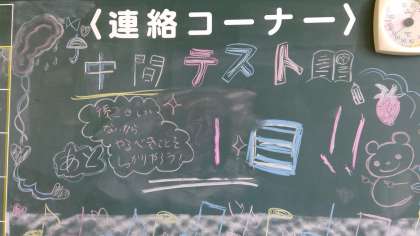 〈連絡コーナー〉
中間テスト
後こうかい
ないから
やるべきことを
しっかりやろう!
あと
1日!!